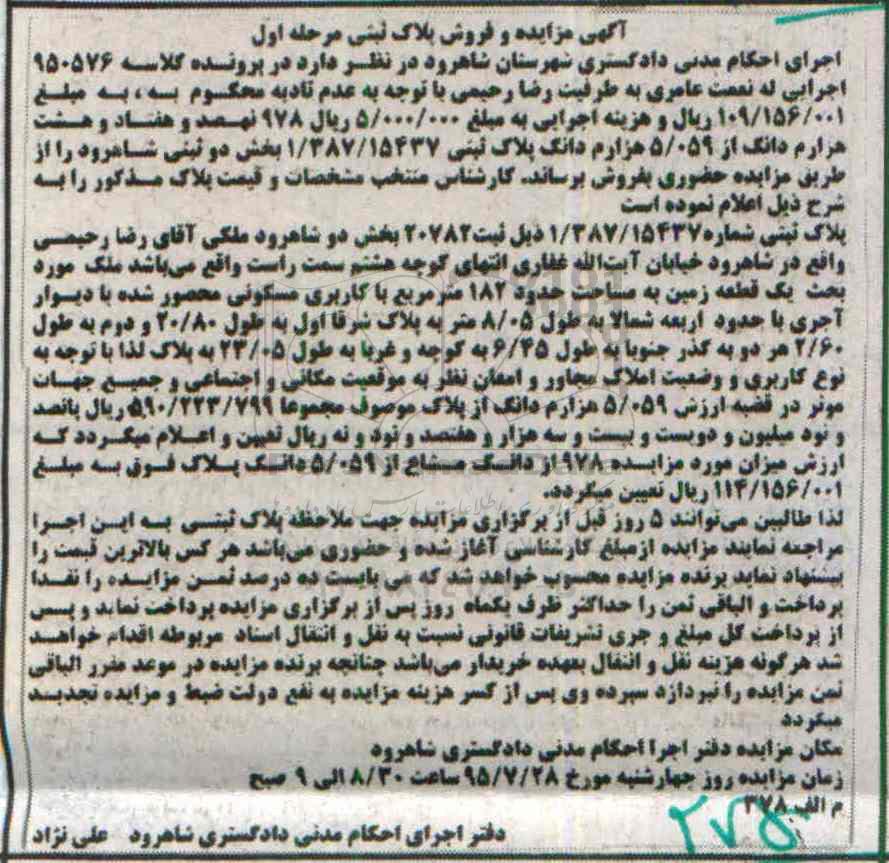 آگهی مزایده و فروش پلاک ثبتی مرحله اول
اجرای احکام مدنی دادگستری شهرستان شاهرود در نظر دارد در پرونده کلاسه ۹۵۰۵۷۶
اجرایی له نعمت عامری به طرفیت رضا رحیمی با توجه به عدم تادیه محکوم به، به مبلغ
۱۰۹/۱۵۶/۰۰۱ ریال و هزینه اجرایی به مبلغ ۵/۰۰۰/۰۰۰ ریال ۹۷۸ نهصد و هفتاد و هشت
هزارم دانگ از ۵/۰۵۹ هزارم دانگ پلاک ثبتی ۱/۳۸۷/۱۵۴۳۷ بخش دو ثبتی شاهرود را از
طریق مزایده حضوری بفروش برساند. کارشناس منتخب مشخصات و قیمت پلاک مذکور را به
شرح ذیل اعلام نموده است
پلاک ثبتی شماره۱/۳۸۷/۱۵۴۳۷ ذیل ثبت۲۰۷۸۲ بخش دو شاهرود ملکی آقای رضا رحیمی
واقع در شاهرود خیابان آیت‌الله غفاری انتهای کوچه هشتم سمت راست واقع می‌باشد ملک مورد
بحث یک قطعه زمین به مساحت حدود ۱۸۲ مترمربع با کاربری مسکونی محصور شده با دیوار
آجری با حدود اربعه شمالا به طول ۸/۰۵ متر به پلاک شرقا اول به طول ۲۰/۸۰ و دوم به طول
۲/۶۰ هر دو به گذر جنوبا به طول ۶/۴۵ به کوچه و غربا به طول ۲۳/۰۵ به پلاک لذا با توجه به
نوع کاربری و وضعیت املاک مجاور و امعان نظر به موقعیت مکانی و اجتماعی و جمیع جهات
موثر در قضیه ارزش ۵/۰۵۹ هزارم دانگ از پلاک موصوف مجموعا ۵۹۰/۲۲۳/۷۹۹ ریال پانصد
و نود میلیون و دویست و بیست و سه هزار و هفتصد و نود و نه ریال تعیین و اعلام میگردد که
ارزش میزان مورد مزایده ۹۷۸ از دانگ مشاع از ۵/۰۵۹ دانگ پلاک فوق به مبلغ
۱۱۴/۱۵۶/۰۰۱ ریال تعیین میگردد.
لذا طالبین می‌توانند ۵ روز قبل از برگزاری مزایده جهت ملاحظه پلاک ثبتی به این اجرا
مراجعه نمایند مزایده ازمبلغ کارشناسی آغاز شده و حضوری می‌باشد هر کس بالاترین قیمت را
پیشنهاد نماید برنده مزایده محسوب خواهد شد که می بایست ده درصد ثمن مزایده را نقدا
پرداخت و الباقی ثمن را حداکثر ظرف یکماه روز پس از برگزاری مزایده پرداخت نماید و پس
از پرداخت کل مبلغ و جری تشریفات قانونی نسبت به نقل و انتقال اسناد مربوطه اقدام خواهد
شد هرگونه هزینه نقل و انتقال بعهده خریدار می‌باشد چنانچه برنده مزایده در موعد مقرر الباقی
ثمن مزایده را نپردازد سپرده وی پس از کسر هزینه مزایده به نفع دولت ضبط و مزایده تجدید
میگردد
مکان مزایده دفتر اجرا احکام مدنی دادگستری شاهرود
زمان مزایده روز چهارشنبه مورخ ۹۵/۷/۲۸ ساعت ۸/۳۰ الی ۹ صبح
م الف ۳۷۸
دفتر اجرای احکام مدنی دادگستری شاهرود علی نژاد